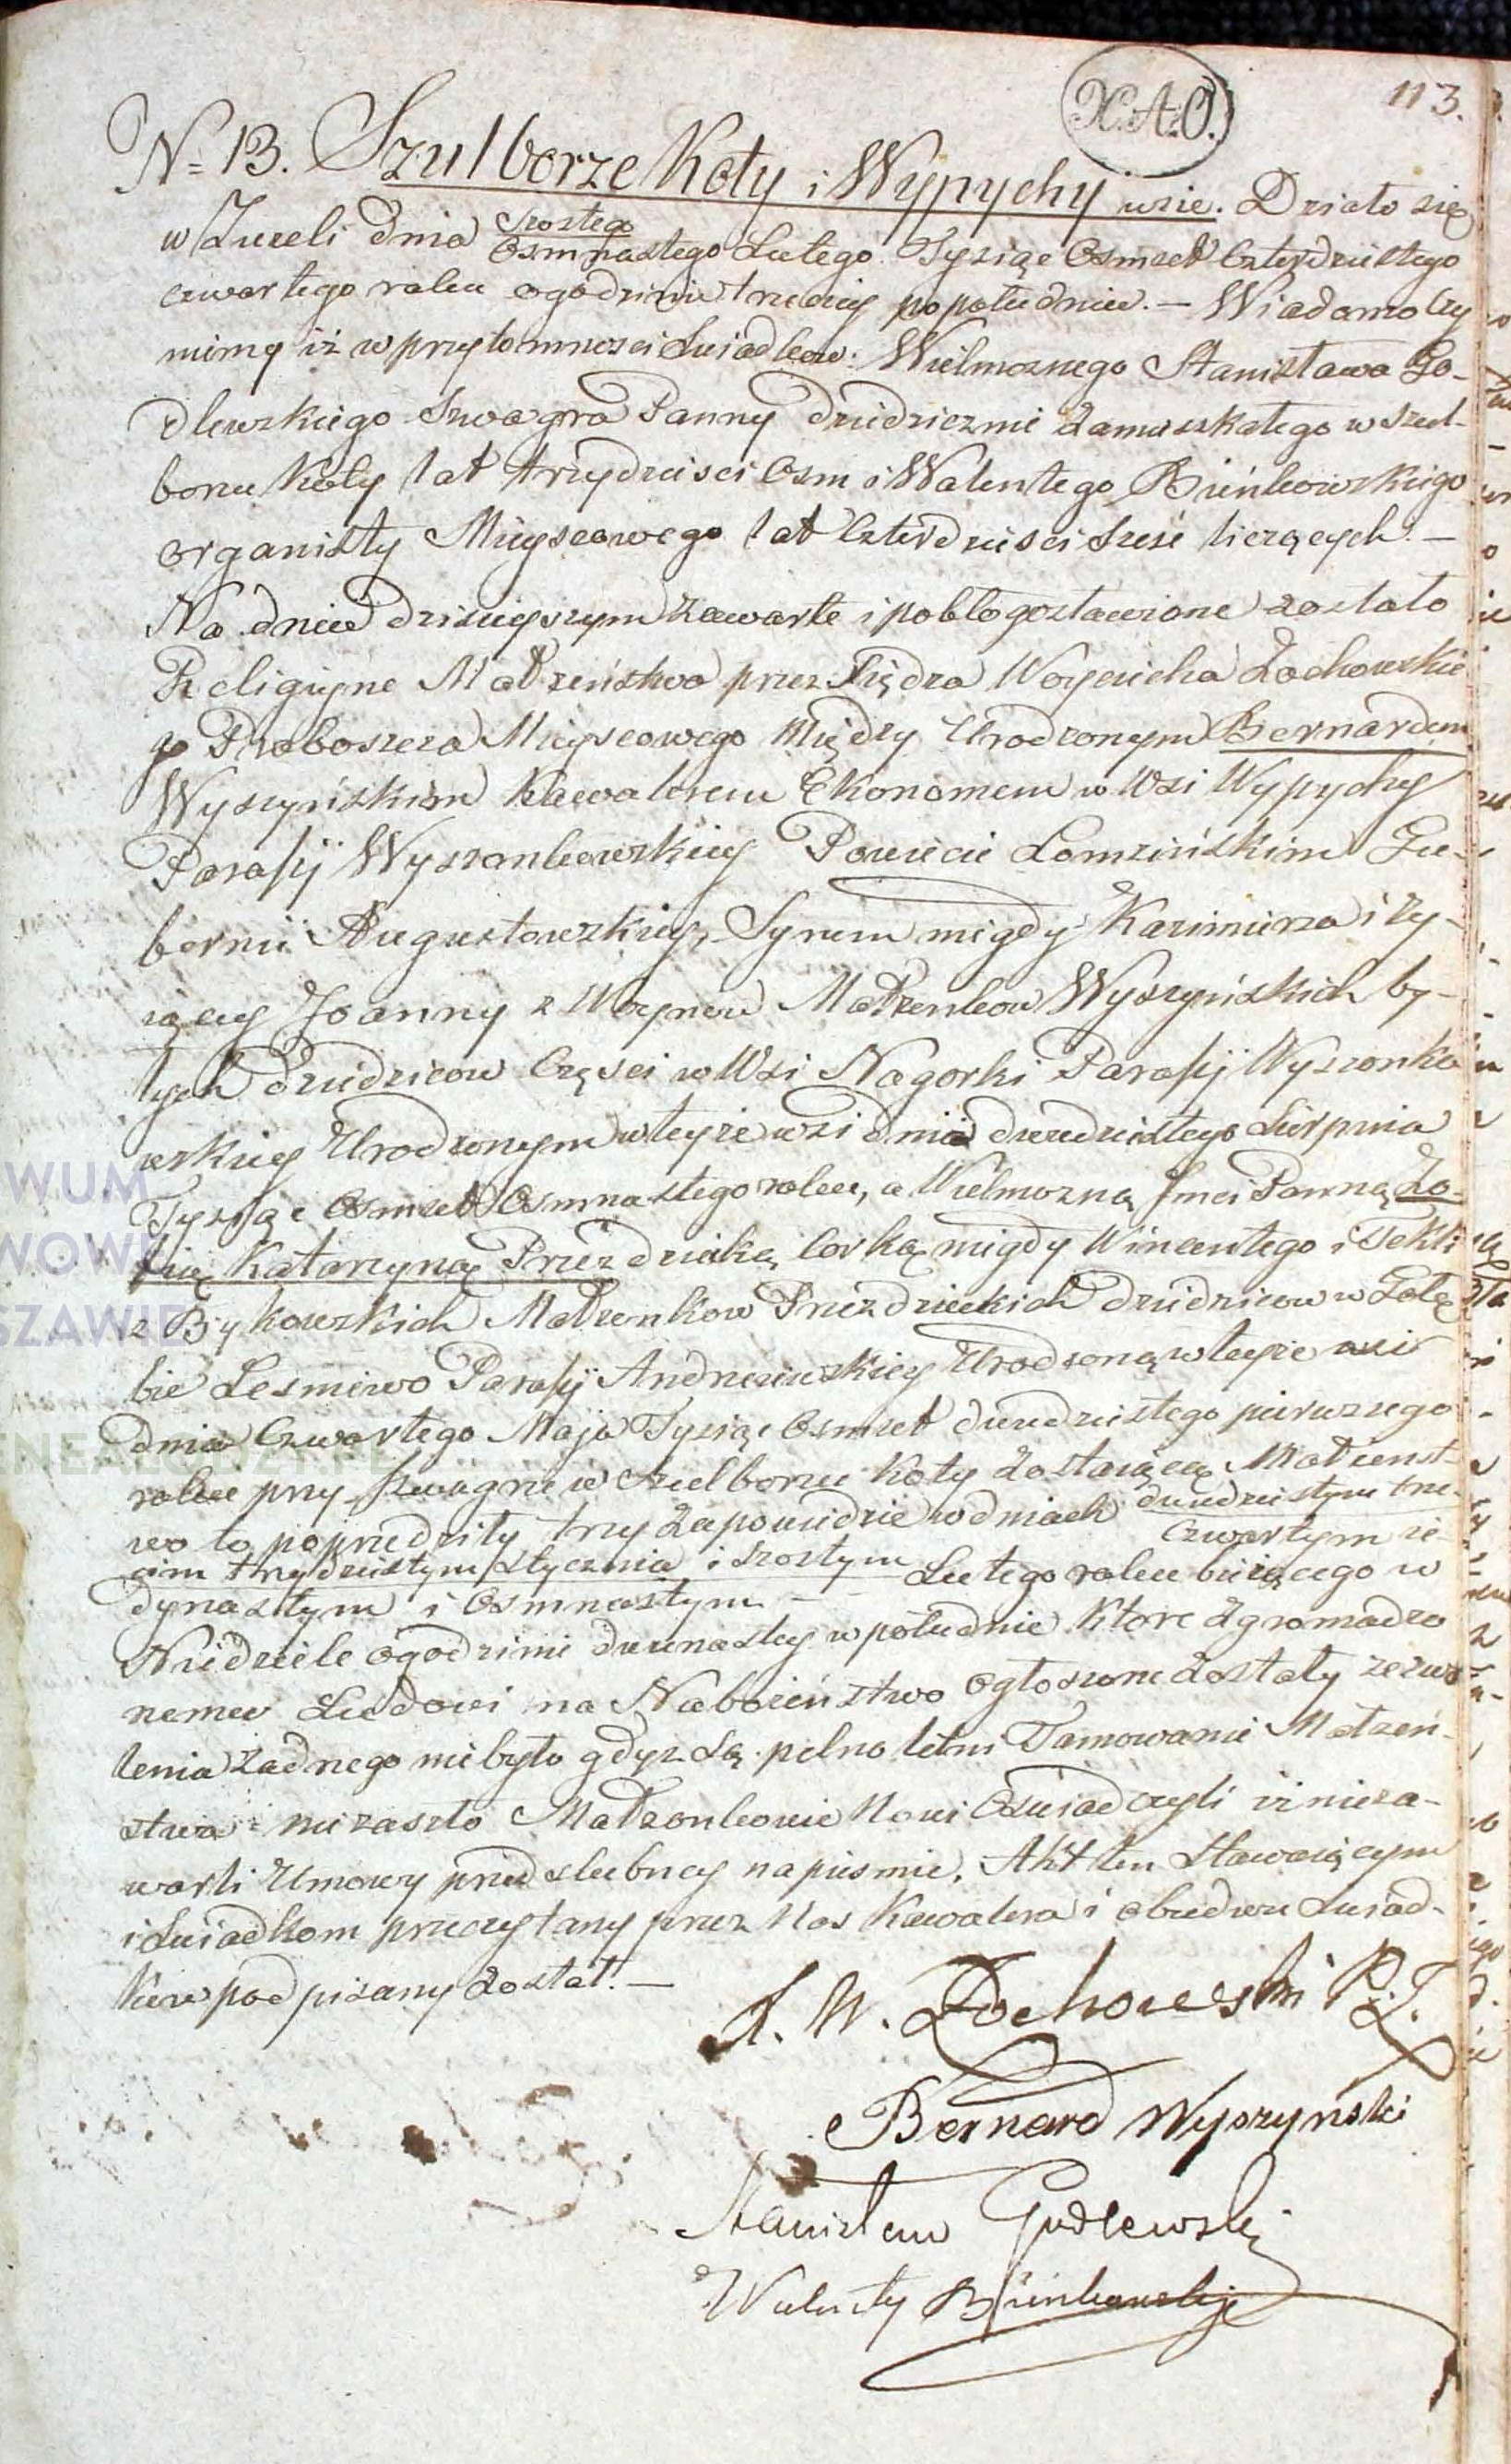 113.
X.A.O.
N= 13. Szulborze Koty i Wypychy wsie. Działo się
w Zuzeli dnia Szostego / Osmnastego Lutego Tysiąc Osmset Czterdziestego
czwartego roku o godzinie trzeciey po południu. — Wiadomo Czy
nimy iż w przytomnosci Swiadkow: Wielmoznego Stanisława Go-
dlewskiego Szwagra Panny dziedzicznie zamieszkałego w Szul-
borzu Koty lat trzydziesci Osm i Walentego Bieńkowskiego
organisty Mieyscowego lat Czterdziesci Szesc liczących. —
Na dniu dzisieyszym zawarte i pobłogosławione zostało
Religiyne Małzeństwo przez Xiędza Woyciecha Zochowskie
go Proboszcza Mieyscowego Między Urodzonym Bernardem
Wyszyńskim Kawalerem Ekonomem w Wsi Wypychy
Parafij Wyszonkowskiey Powiecie Łomzińskim Gu-
bernii Augustowskiey, Synem niegdy Kazimierza i ży-
iącey Joanny z Woynow Małzonkow Wyszyńskich by-
łych dziedzicow Części w Wsi Nagorki Parafij Wyszonko
wskiey Urodzonym w teyże wsi dnia dwudziestego Sierpnia
Tysiąc Osmset Osmnastego roku, a Wielmozną Jmci Panną Zo-
fiią Katarzyną Przezdziecką Corką niegdy Wincentego i Tekli
z Bykowskich Małzonkow Przezdzieckich dziedzicow w Gołę
bie Lesniewo Parafij Andrzeiewskiey Urodzoną w teyże wsi
dnia Czwartego Maja Tysiąc Osmset dwudziestego pierwszego
roku przy Szwagrze w Szulborzu Koty zostaiącą Małzenst-
wo to poprzedziły trzy zapowiedzie w dniach dwudziestym trze-
cim trzydziestym Stycznia i szostym Czwartym ie-
dynastym i Osmnastym — Lutego roku bieżącego w
Niedziele o godzinie dwunastey w południe które zgromadzo
nemu Ludowi na Nabożeństwo ogłoszone zostały zezwo
lenia żadnego nie było gdyż są pełnoletni Tamowanie Małżeń-
stwa nie zaszło Małzonkowie Nowi Oswiadczyli iż nieza-
warli Umowy przedslubney na pismie. Akt ten Stawaiącym
i Swiadkom przeczytany przez Nas Kawalera i obudwu Swiad-
kow podpisany został. —
X. W. Zochowski P.Z.
Bernard Wyszynski
Stanisław Godlewski
Walenty Bieńkowski